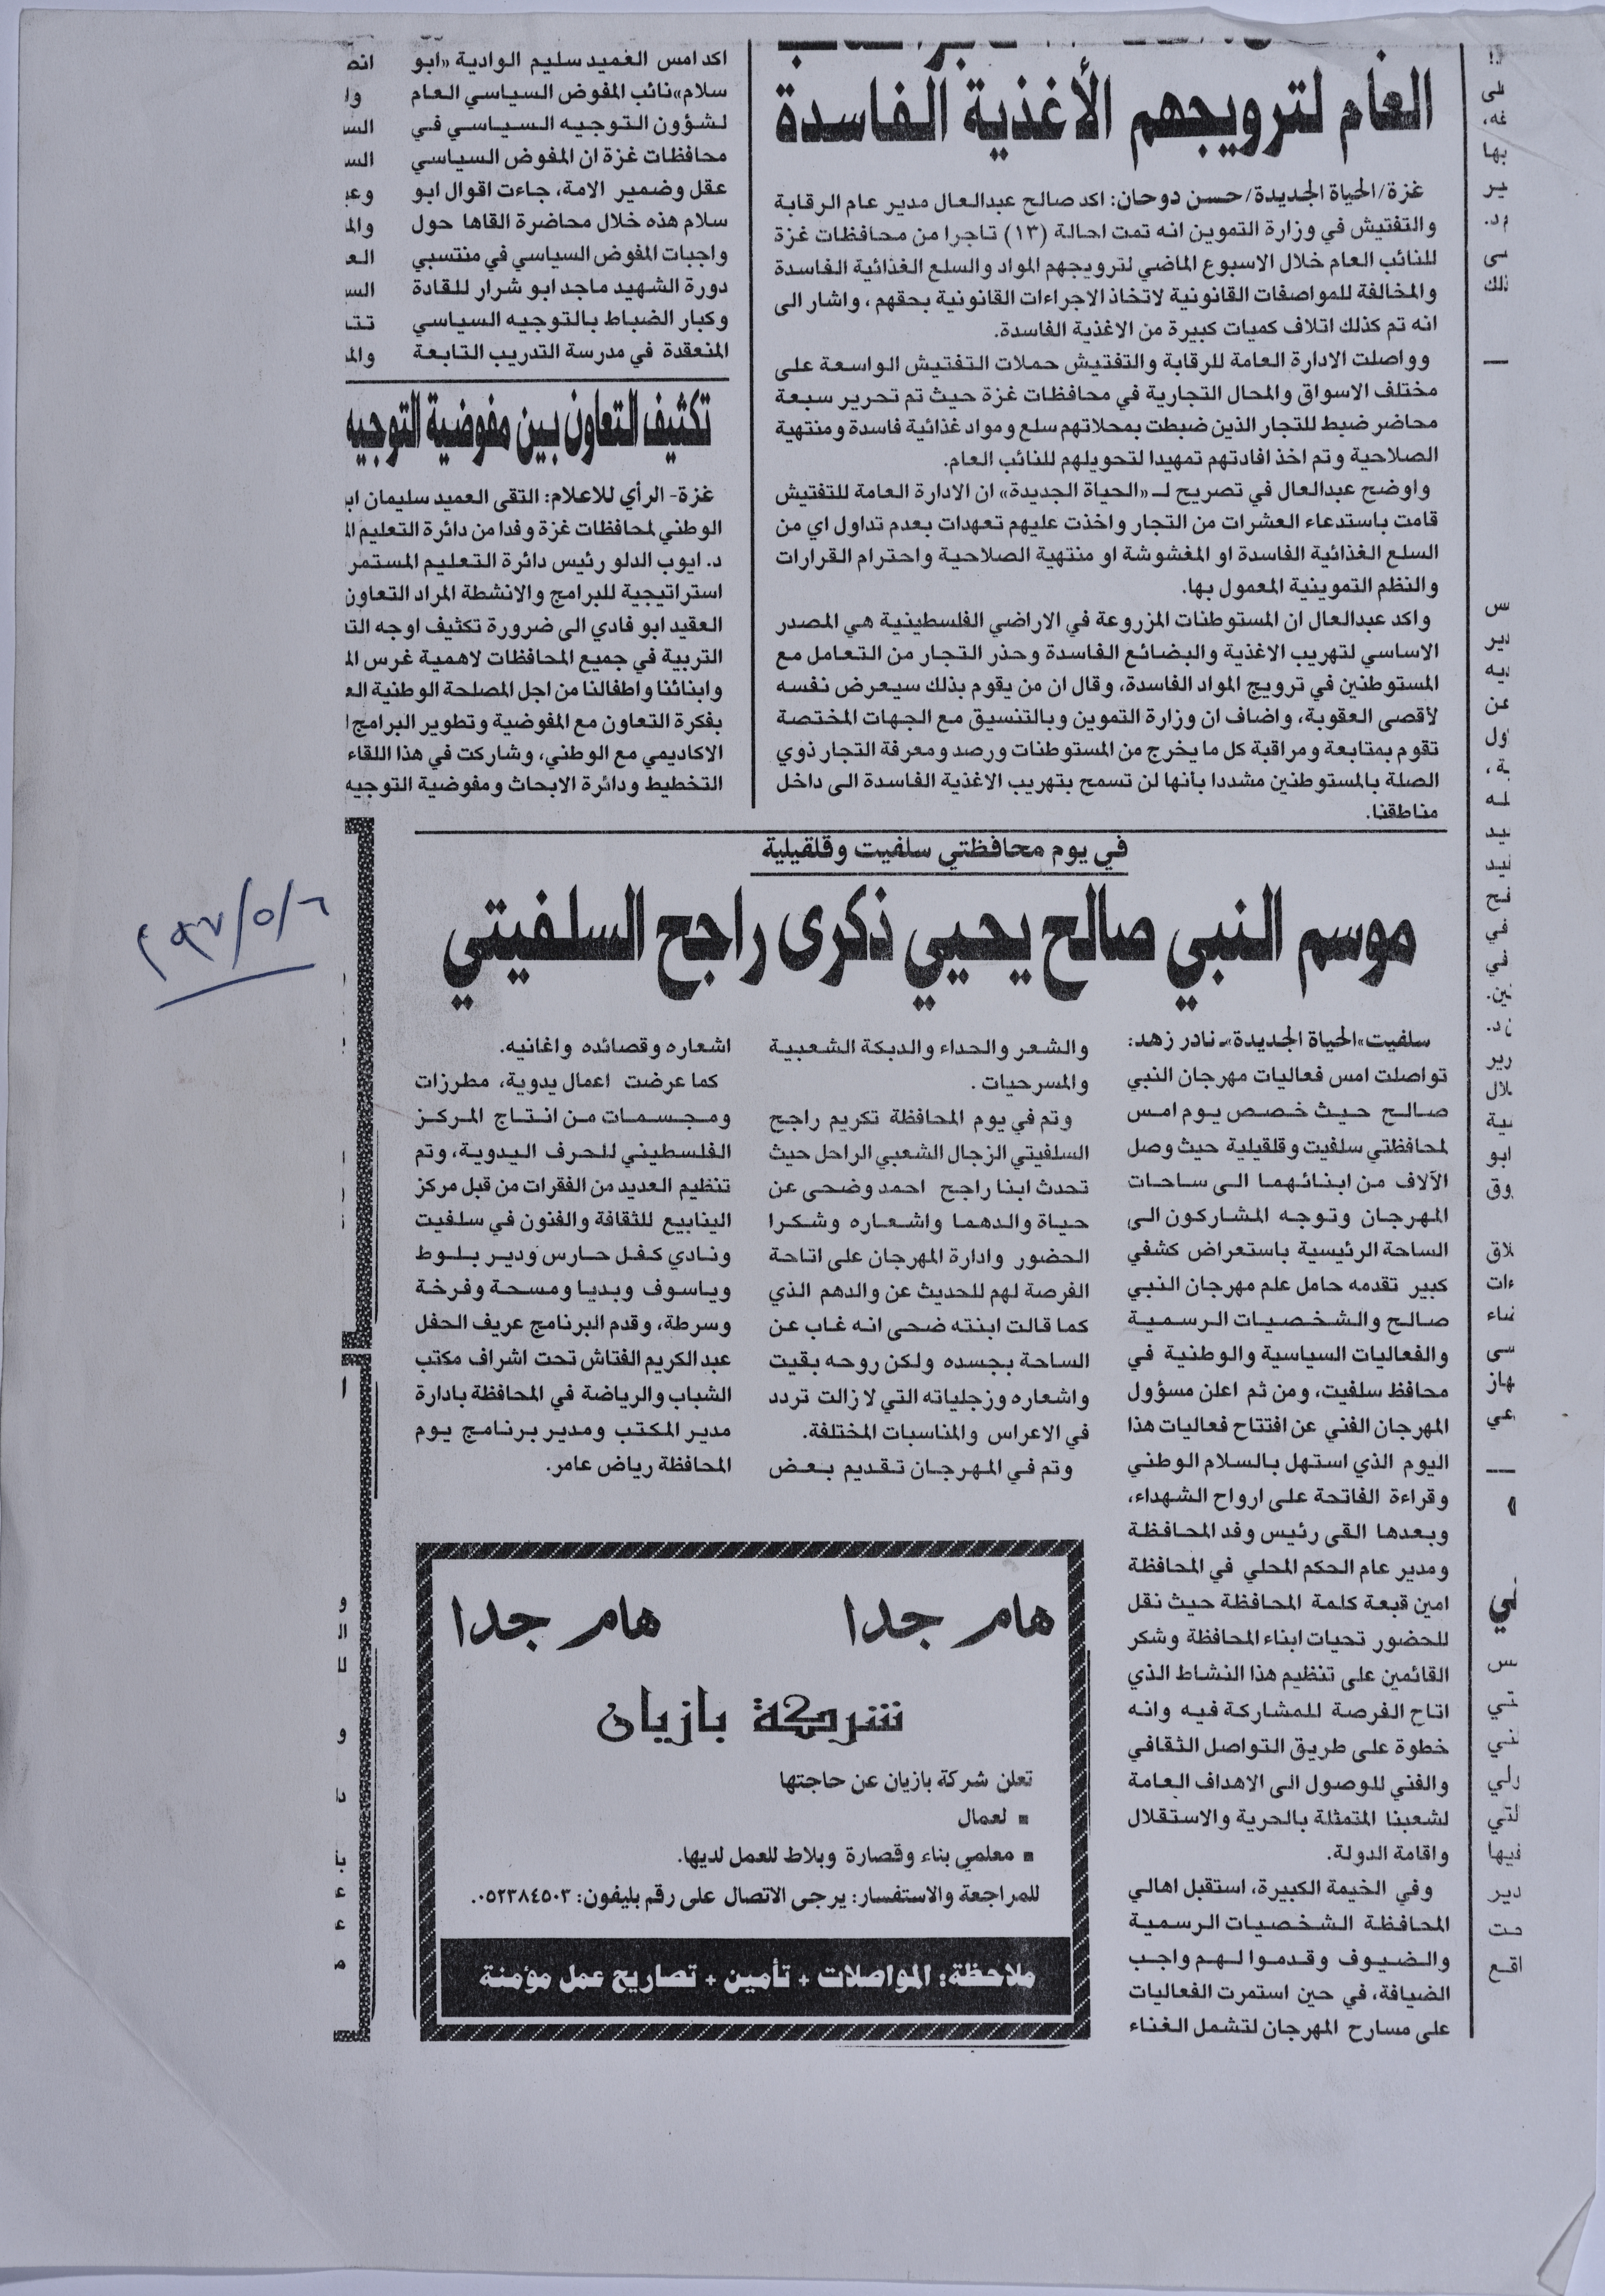 العام لترويجهم الأغذية الفاسدة
غزة/الحياة الجديدة/حسن دوحان: اكد صالح عبدالعال مدير عام الرقابة
والتفتيش في وزارة التموين انه تمت احالة (١٣) تاجرا من محافظات غزة
للنائب العام خلال الاسبوع الماضي لترويجهم المواد والسلع الغذائية الفاسدة
والمخالفة للمواصفات القانونية لاتخاذ الاجراءات القانونية بحقهم، واشار الى
انه تم كذلك اتلاف كميات كبيرة من الاغذية الفاسدة.
وواصلت الادارة العامة للرقابة والتفتيش حملات التفتيش الواسعة على
مختلف الاسواق والمحال التجارية في محافظات غزة حيث تم تحرير سبعة
محاضر ضبط للتجار الذين ضبطت بمحلاتهم سلع ومواد غذائية فاسدة ومنتهية
الصلاحية وتم اخذ افادتهم تمهيدا لتحويلهم للنائب العام.
واوضح عبدالعال في تصريح لـ «الحياة الجديدة» ان الادارة العامة للتفتيش
قامت باستدعاء العشرات من التجار واخذت عليهم تعهدات بعدم تداول اي من
السلع الغذائية الفاسدة او المغشوشة او منتهية الصلاحية واحترام القرارات
والنظم التموينية المعمول بها.
واكد عبدالعال ان المستوطنات المزروعة في الاراضي الفلسطينية هي المصدر
الاساسي لتهريب الاغذية والبضائع الفاسدة وحذر التجار من التعامل مع
المستوطنين في ترويج المواد الفاسدة، وقال ان من يقوم بذلك سيعرض نفسه
لأقصى العقوبة، واضاف ان وزارة التموين وبالتنسيق مع الجهات المختصة
تقوم بمتابعة ومراقبة كل ما يخرج من المستوطنات ورصد ومعرفة التجار ذوي
الصلة بالمستوطنين مشددا بأنها لن تسمح بتهريب الاغذية الفاسدة الى داخل
مناطقنا.
اكد امس العميد سليم الوادية «ابو
سلام» نائب المفوض السياسي العام
لشؤون التوجيه السياسي في
محافظات غزة ان المفوض السياسي
عقل وضمير الامة، جاءت اقوال ابو
سلام هذه خلال محاضرة القاها حول
واجبات المفوض السياسي في منتسبي
دورة الشهيد ماجد ابو شرار للقادة
وكبار الضباط بالتوجيه السياسي
المنعقدة في مدرسة التدريب التابعة
تكثيف التعاون بين مفوضية التوجيه
غزة- الرأي للاعلام: التقى العميد سليمان اب
الوطني لمحافظات غزة وفدا من دائرة التعليم ال
د. ايوب الدلو رئيس دائرة التعليم المستمر
استراتيجية للبرامج والانشطة المراد التعاون
العقيد ابو فادي الى ضرورة تكثيف اوجه الت
التربية في جميع المحافظات لاهمية غرس الم
وابنائنا واطفالنا من اجل المصلحة الوطنية الع
بفكرة التعاون مع المفوضية وتطوير البرامج ا
الاكاديمي مع الوطني، وشاركت في هذا اللقاء
التخطيط ودائرة الابحاث ومفوضية التوجيه
في يوم محافظتي سلفيت وقلقيلية
موسم النبي صالح يحيي ذكرى راجح السلفيتي
سلفيت «الحياة الجديدة» ـ نادر زهد:
تواصلت امس فعاليات مهرجان النبي
صالح حيث خصص يوم امس
لمحافظتي سلفيت وقلقيلية حيث وصل
الآلاف من ابنائهما الى ساحات
المهرجان وتوجه المشاركون الى
الساحة الرئيسية باستعراض كشفي
كبير تقدمه حامل علم مهرجان النبي
صالح والشخصيات الرسمية
والفعاليات السياسية والوطنية في
محافظ سلفيت، ومن ثم اعلن مسؤول
المهرجان الفني عن افتتاح فعاليات هذا
اليوم الذي استهل بالسلام الوطني
وقراءة الفاتحة على ارواح الشهداء،
وبعدها القى رئيس وفد المحافظة
ومدير عام الحكم المحلي في المحافظة
امين قبعة كلمة المحافظة حيث نقل
للحضور تحيات ابناء المحافظة وشكر
القائمين على تنظيم هذا النشاط الذي
اتاح الفرصة للمشاركة فيه وانه
خطوة على طريق التواصل الثقافي
والفني للوصول الى الاهداف العامة
لشعبنا المتمثلة بالحرية والاستقلال
واقامة الدولة.
وفي الخيمة الكبيرة، استقبل اهالي
المحافظة الشخصيات الرسمية
والضيوف وقدموا لهم واجب
الضيافة، في حين استمرت الفعاليات
على مسارح المهرجان لتشمل الغناء
والشعر والحداء والدبكة الشعبية
والمسرحيات.
وتم في يوم المحافظة تكريم راجح
السلفيتي الزجال الشعبي الراحل حيث
تحدث ابنا راجح احمد وضحى عن
حياة والدهما واشعاره وشكرا
الحضور وادارة المهرجان على اتاحة
الفرصة لهم للحديث عن والدهم الذي
كما قالت ابنته ضحى انه غاب عن
الساحة بجسده ولكن روحه بقيت
واشعاره وزجلياته التي لازالت تردد
في الاعراس والمناسبات المختلفة.
وتم في المهرجان تقديم بعض
اشعاره وقصائده واغانيه.
كما عرضت اعمال يدوية، مطرزات
ومجسمات من انتاج المركز
الفلسطيني للحرف اليدوية، وتم
تنظيم العديد من الفقرات من قبل مركز
الينابيع للثقافة والفنون في سلفيت
ونادي كفل حارس ودير بلوط
وياسوف وبديا ومسحة وفرخة
وسرطة، وقدم البرنامج عريف الحفل
عبدالكريم الفتاش تحت اشراف مكتب
الشباب والرياضة في المحافظة بادارة
مدير المكتب ومدير برنامج يوم
المحافظة رياض عامر.
هام جدا هام جدا
شركة بازيان
تعلن شركة بازيان عن حاجتها
▪ لعمال
▪ معلمي بناء وقصارة وبلاط للعمل لديها.
للمراجعة والاستفسار: يرجى الاتصال على رقم بليفون: ٠٥٢٣٨٤٥٠٣.
ملاحظة: المواصلات + تأمين + تصاريح عمل مؤمنة